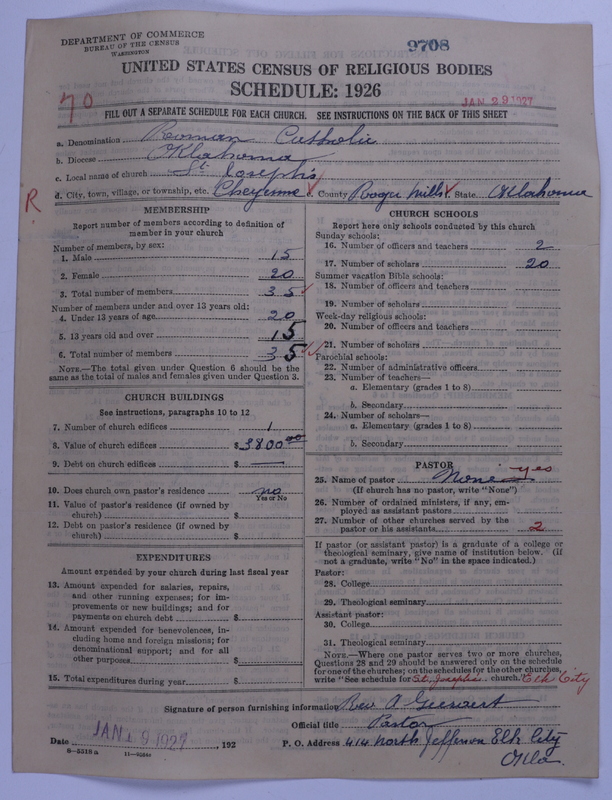 DEPARTMENT OF COMMERCE
BUREAU OF THE CENSUS
WASHINGTON
9708
UNITED STATES CENSUS OF RELIGIOUS BODIES
SCHEDULE: 1926
70
JAN 29 1927
FILL OUT A SEPARATE SCHEDULE FOR EACH CHURCH. SEE INSTRUCTIONS ON THE BACK OF THIS SHEET
a. Denomination Roman Catholic
b. Diocese Oklahoma
c. Local name of church St. Joseph's
R d. City, town, village, or township, etc. Cheyenne e. County Roger Mills f. State Oklahoma
MEMBERSHIP
Report number of members according to definition of
member in your church
Number of members, by sex:
1. Male 15
2. Female 20
3. Total number of members 35
Number of members under and over 13 years old:
4. Under 13 years of age 20
5. 13 years old and over 15
6. Total number of members 35
NOTE.—The total given under Question 6 should be
same as the total of males and females given under Question 3.
CHURCH BUILDINGS
See instructions, paragraphs 10 to 12
7. Number of church edifices 1
8. Value of church edifices $3800.00
9. Debt on church edifices $ —
10. Does church own pastor's residence no
Yes or No
11. Value of pastor's residence (if owned by
church) $
12. Debt on pastor's residence (if owned by
church) $
EXPENDITURES
Amount expended by your church during last fiscal year
13. Amount expended for salaries, repairs,
and other running expenses; for im-
provements or new buildings; and for
payments on church debt $
14. Amount expended for benevolences, in-
cluding home and foreign missions; for
denominational support; and for all
other purposes $
15. Total expenditures during year $
CHURCH SCHOOLS
Report here only schools conducted by this church
Sunday schools:
16. Number of officers and teachers 2
17. Number of scholars 20
Summer vacation Bible schools:
18. Number of officers and teachers
19. Number of scholars
Week-day religious schools:
20. Number of officers and teachers
21. Number of scholars
Parochial schools:
22. Number of administrative officers
23. Number of teachers—
a. Elementary (grades 1 to 8)
b. Secondary
24. Number of scholars—
a. Elementary (grades 1 to 8)
b. Secondary
PASTOR
25. Name of pastor None yes
(If church has no pastor, write "None")
26. Number of ordained ministers, if any, em-
ployed as assistant pastors
27. Number of other churches served by the
pastor or his assistants 2
If pastor (or assistant pastor) is a graduate of a college or
theological seminary, give name of institution below. (If
not a graduate, write "No" in the space indicated.)
Pastor:
28. College
29. Theological seminary
Assistant pastor:
30. College
31. Theological seminary
NOTE.—Where one pastor serves two or more churches,
Questions 28 and 29 should be answered only on the schedule
for one of the churches; on the schedules for the other churches,
write "See schedule for St. Josephs church." Elk City
Signature of person furnishing information Rev. A
Official title Pastor
Date JAN 19 1927, 192
P. O. Address 414 North Jefferson Elk City
Okla.
6-5518a